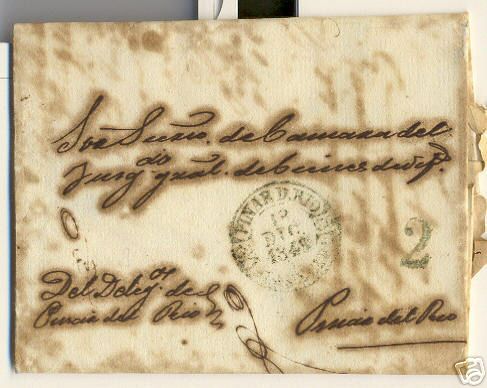 Sor Secrio. de Camara del
Juzgdo gral. de bienes de
PINAR D. RIO
12
DIC
1848
2
Del Delegdo. de
Pinar del Rio
Pinar del Rio